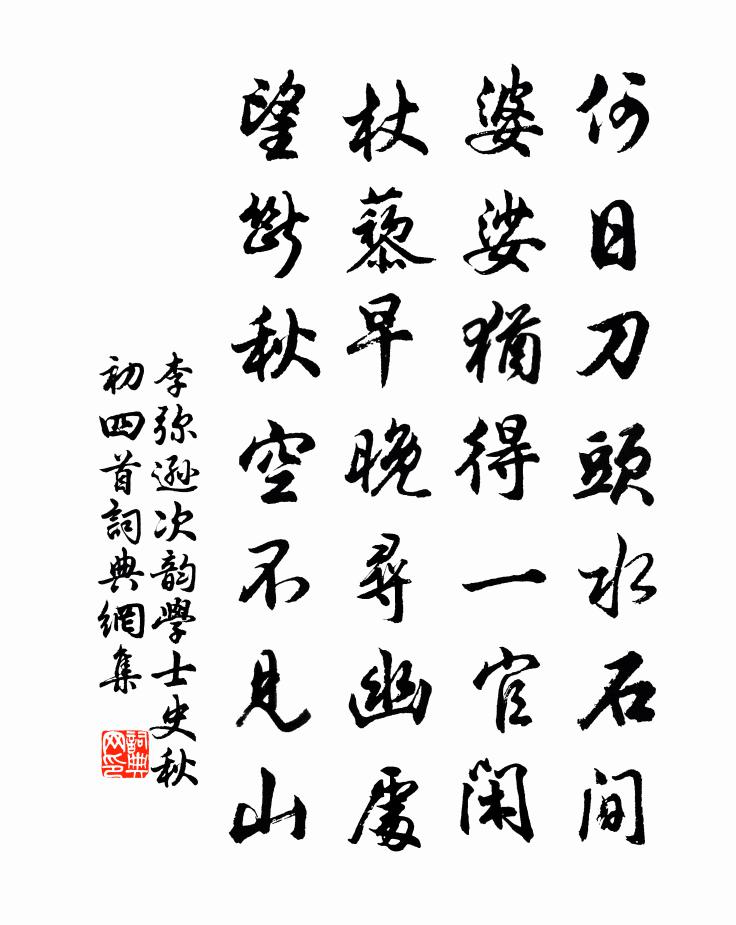 何日刀頭水石间
婆娑猶得一官闲
杖藜早晚尋幽處
望斷秋空不見山
李弥遜次韵學士史秋
初四首詞典網集
詞典
网印